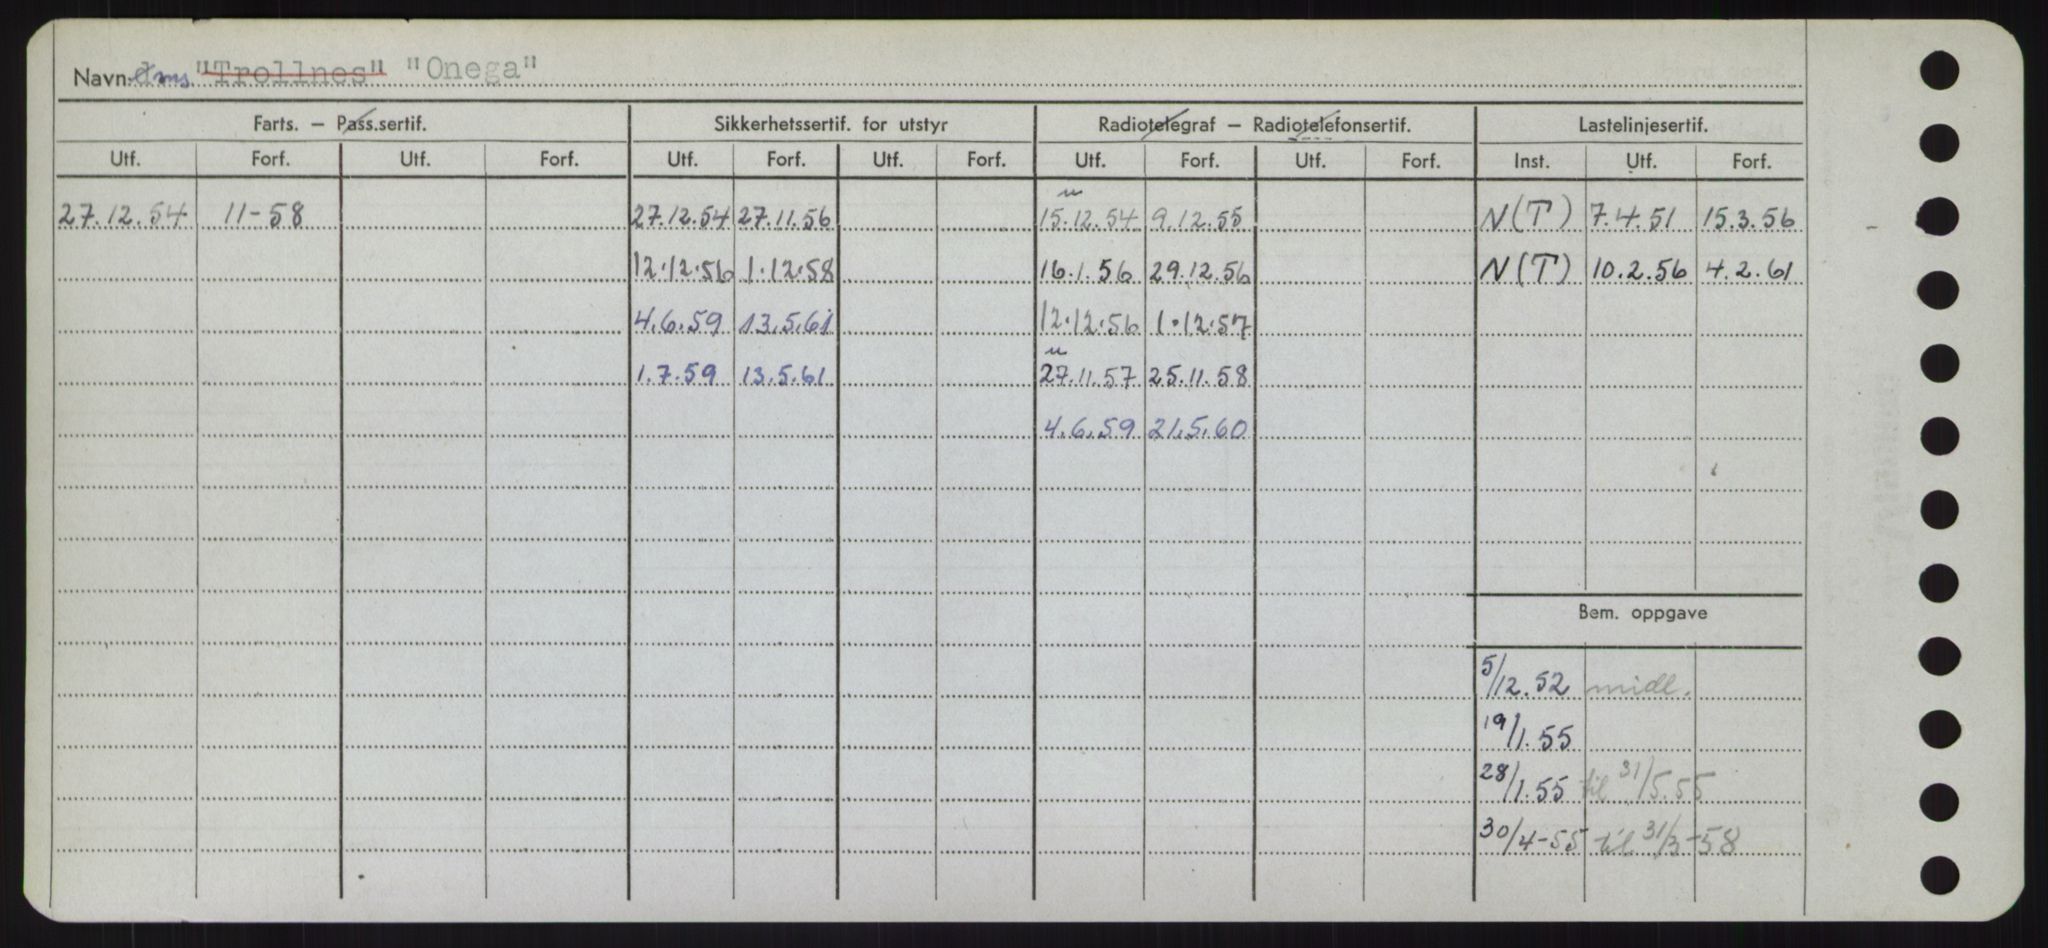 Navn: dms "Trollnes" "Onega"
Farts. – Pass.sertif. Sikkerhetssertif. for utstyr Radiotelegraf – Radiotelefonsertif. Lastelinjesertif.
Utf. Forf. Utf. Forf. Utf. Forf. Utf. Forf. Utf. Forf. Utf. Forf. Inst. Utf. Forf.
27.12.54 11-58 27.12.54 27.11.56 15.12.54 9.12.55 N(T) 7.4.51 15.3.56
12.12.56 1.12.58 16.1.56 29.12.56 N(T) 10.2.56 4.2.61
4.6.59 13.5.61 12.12.56 1.12.57
1.7.59 13.5.61 27.11.57 25.11.58
4.6.59 21.5.60
Bem. oppgave
5/12.52 midl.
19/1.55
28/1.55 til 31/5.55
30/4-55 til 31/3-58